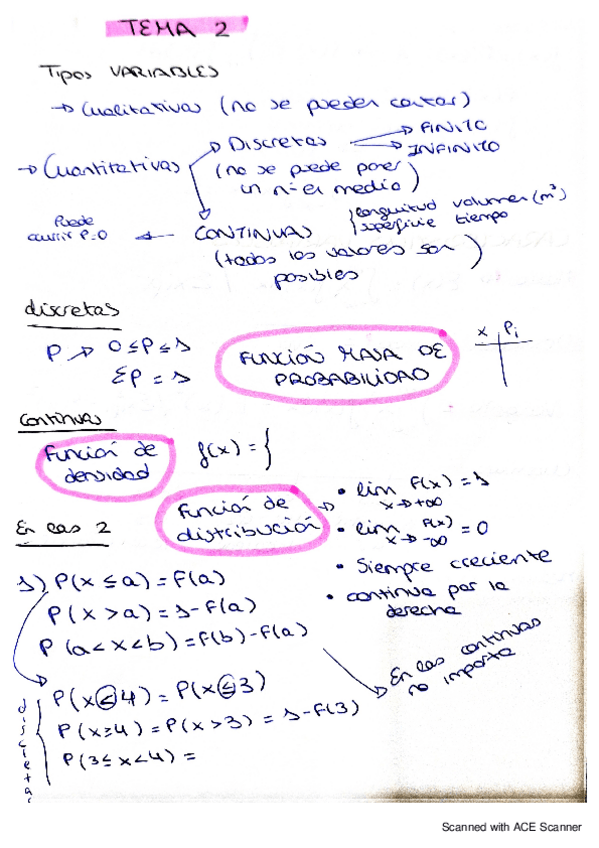 TEMA 2
Tipos VARIABLES
→ Cualitativas (no se pueden contar)
→ Cuantitativas
Discretas → FINITO
→ INFINITO
(no se puede poner un nº en medio)
CONTINUAS { longuitud volumen (m³)
superficie tiempo
(todos los valores son posibles)
Puede ocurrir P=0 ←
discretas
P → 0≤P≤1
ΣP = 1
FUNCIÓN MASA DE
PROBABILIDAD
x | Pi
Continuas
Función de
densidad
f(x) = {
Función de
distribución →
• lim F(x) = 1
x→+∞
• lim F(x) = 0
x→-∞
• Siempre creciente
• continua por la
derecha
En las 2
1) P(x ≤ a) = F(a)
P(x > a) = 1-F(a)
P(a < x < b) = F(b)-F(a)
En las continuas
no importa
discretas
P(x < 4) = P(x ≤ 3)
P(x ≥ 4) = P(x > 3) = 1-F(3)
P(3 ≤ x < 4) =
Scanned with ACE Scanner